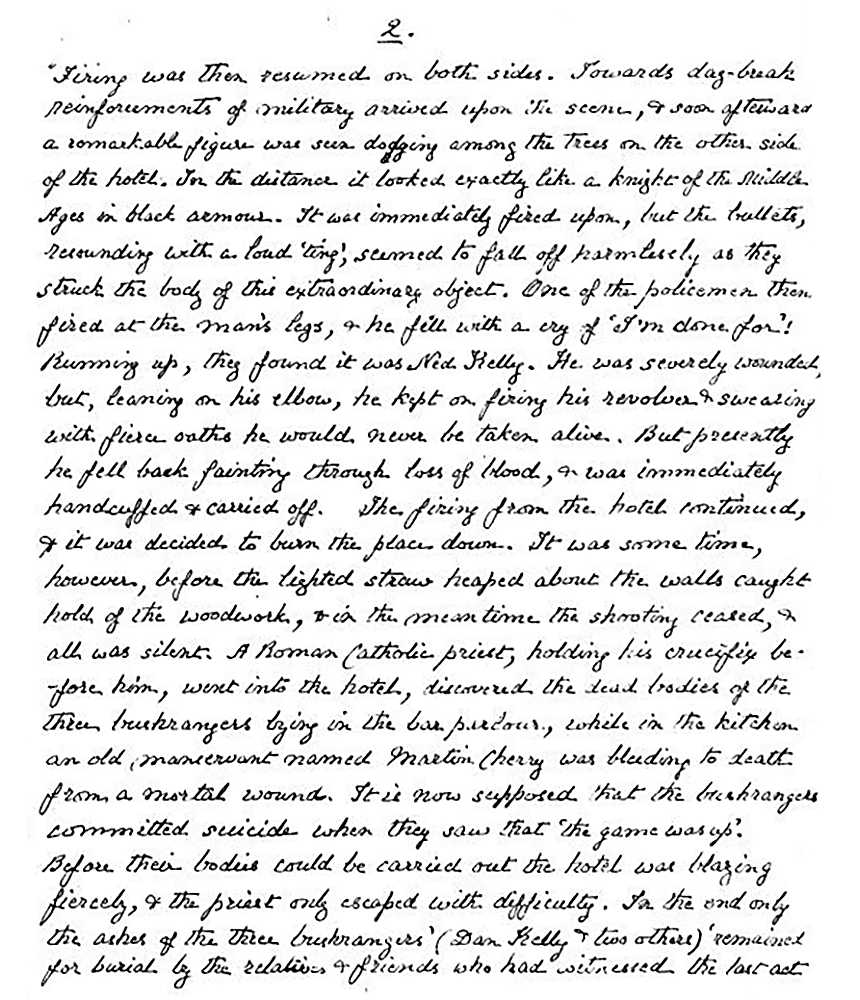 2.
"Firing was then resumed on both sides. Towards day-break
reinforcements of military arrived upon the scene, & soon afterward
a remarkable figure was seen dodging among the trees on the other side
of the hotel. In the distance it looked exactly like a knight of the Middle
Ages in black armour. It was immediately fired upon, but the bullets,
resounding with a loud 'ting', seemed to fall off harmlessly as they
struck the body of this extraordinary object. One of the policemen then
fired at the man's legs, & he fell with a cry of 'I'm done for'!
Running up, they found it was Ned Kelly. He was severely wounded,
but, leaning on his elbow, he kept on firing his revolver & swearing
with fierce oaths he would never be taken alive. But presently
he fell back fainting through loss of blood, & was immediately
handcuffed & carried off. The firing from the hotel continued,
& it was decided to burn the place down. It was some time,
however, before the lighted straw heaped about the walls caught
hold of the woodwork, & in the meantime the shooting ceased, &
all was silent. A Roman Catholic priest, holding his crucifix be-
-fore him, went into the hotel, discovered the dead bodies of the
three bushrangers lying in the bar parlour, while in the kitchen
an old manservant named Martin Cherry was bleeding to death
from a mortal wound. It is now supposed that the bushrangers
committed suicide when they saw that 'the game was up'.
Before their bodies could be carried out the hotel was blazing
fiercely, & the priest only escaped with difficulty. In the end only
the ashes of the three bushrangers' (Dan Kelly & two others) 'remained
for burial by the relatives & friends who had witnessed the last act